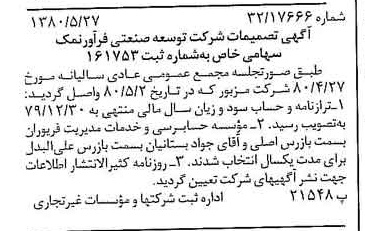 شماره ۳۲/۱۷۶۶۶ ۱۳۸۰/۵/۲۷
آگهی تصمیمات شرکت توسعه صنعتی فرآورنمک
سهامی خاص به‌شماره ثبت ۱۶۱۷۵۳
طبق صورتجلسه مجمع عمومی عادی سالیانه مورخ
۸۰/۴/۲۷ شرکت مزبور که در تاریخ ۸۰/۵/۲ واصل گردید:
۱ـ ترازنامه و حساب سود و زیان سال مالی منتهی به ۷۹/۱۲/۳۰
به‌تصویب رسید. ۲ـ مؤسسه حسابرسی و خدمات مدیریت فریوران
بسمت بازرس اصلی و آقای جواد بستانیان بسمت بازرس علی‌البدل
برای مدت یکسال انتخاب شدند. ۳ـ روزنامه کثیرالانتشار اطلاعات
جهت نشر آگهیهای شرکت تعیین گردید.
پ ۲۱۵۴۸ اداره ثبت شرکتها و مؤسسات غیرتجاری